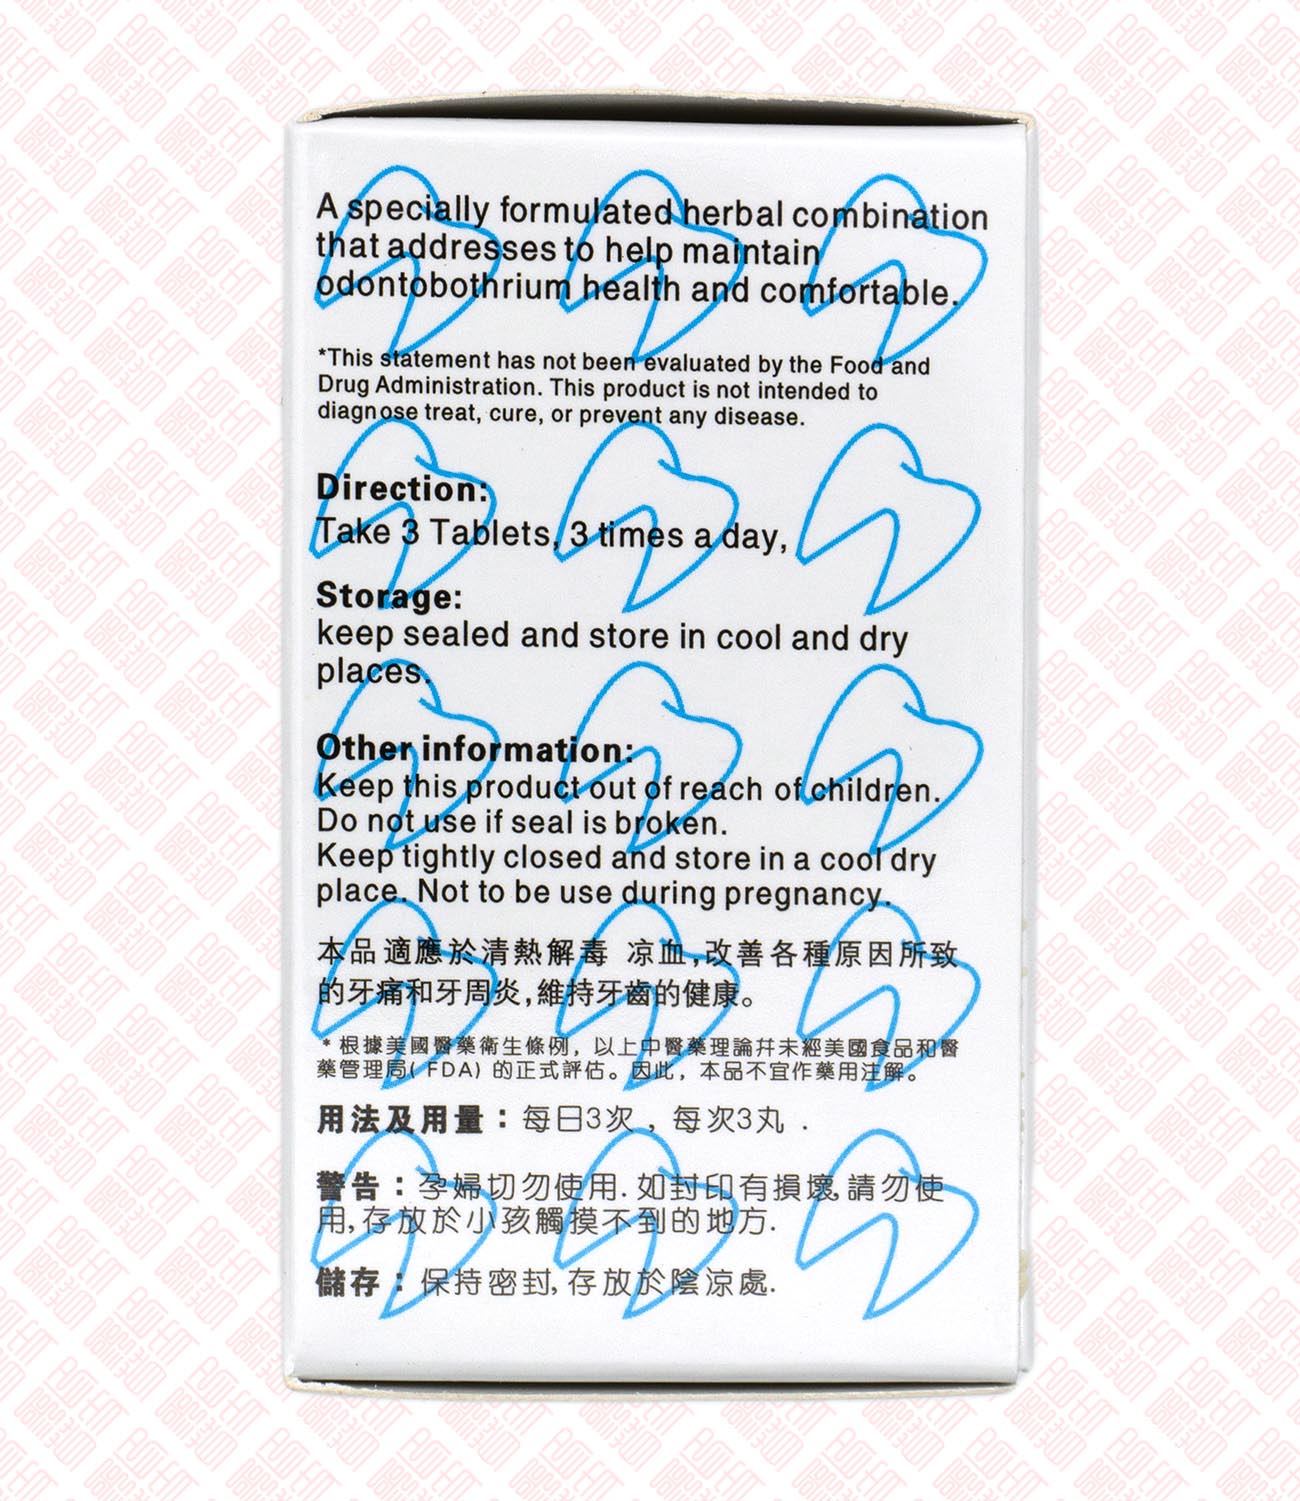 A specially formulated herbal combination
that addresses to help maintain
odontobothrium health and comfortable.
*This statement has not been evaluated by the Food and
Drug Administration. This product is not intended to
diagnose treat, cure, or prevent any disease.
Direction:
Take 3 Tablets, 3 times a day,
Storage:
keep sealed and store in cool and dry
places.
Other information:
Keep this product out of reach of children.
Do not use if seal is broken.
Keep tightly closed and store in a cool dry
place. Not to be use during pregnancy.
本品適應於清熱解毒 凉血,改善各種原因所致
的牙痛和牙周炎,維持牙齒的健康。
* 根據美國醫藥衛生條例，以上中醫藥理論幷未經美國食品和醫
藥管理局( FDA) 的正式評估。因此，本品不宜作藥用注解。
用法及用量：每日3次，每次3丸 .
警告：孕婦切勿使用. 如封印有損壞,請勿使
用,存放於小孩觸摸不到的地方.
儲存：保持密封,存放於陰涼處.